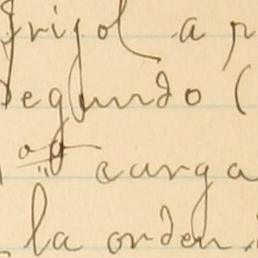 frijol a p
Segundo (
carga
la orden